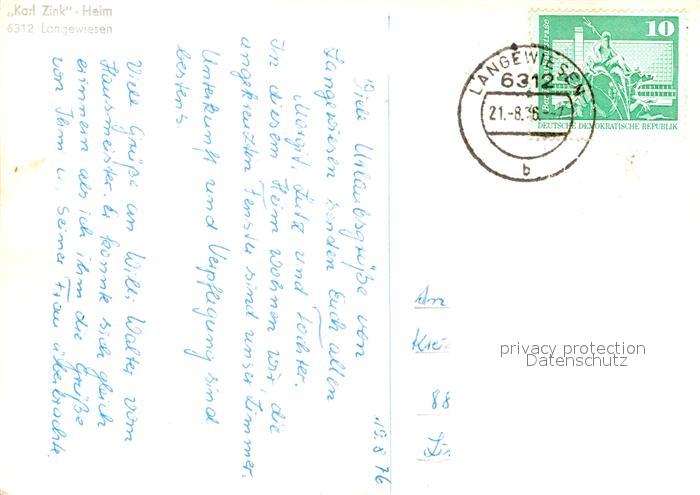 „Karl Zink"-Heim
6312 Langewiesen
19.8.76
Viele Urlaubsgrüße von
Langewiesen senden Euch allen
Margit, Lutz und Tochter.
In diesem Heim wohnen wir, die
angekreuzten Fenster sind unser Zimmer.
Unterkunft und Verpflegung sind
bestens.
Viele Grüße an Willi Walter vom
Hausmeister. Er konnte sich gleich
erinnern als ich ihm die Grüße
von Ihm u. seiner Frau überbrachte.
LANGEWIESEN
6312
21.-8.76
b
10
DEUTSCHE DEMOKRATISCHE REPUBLIK
An
88
privacy protection
Datenschutz